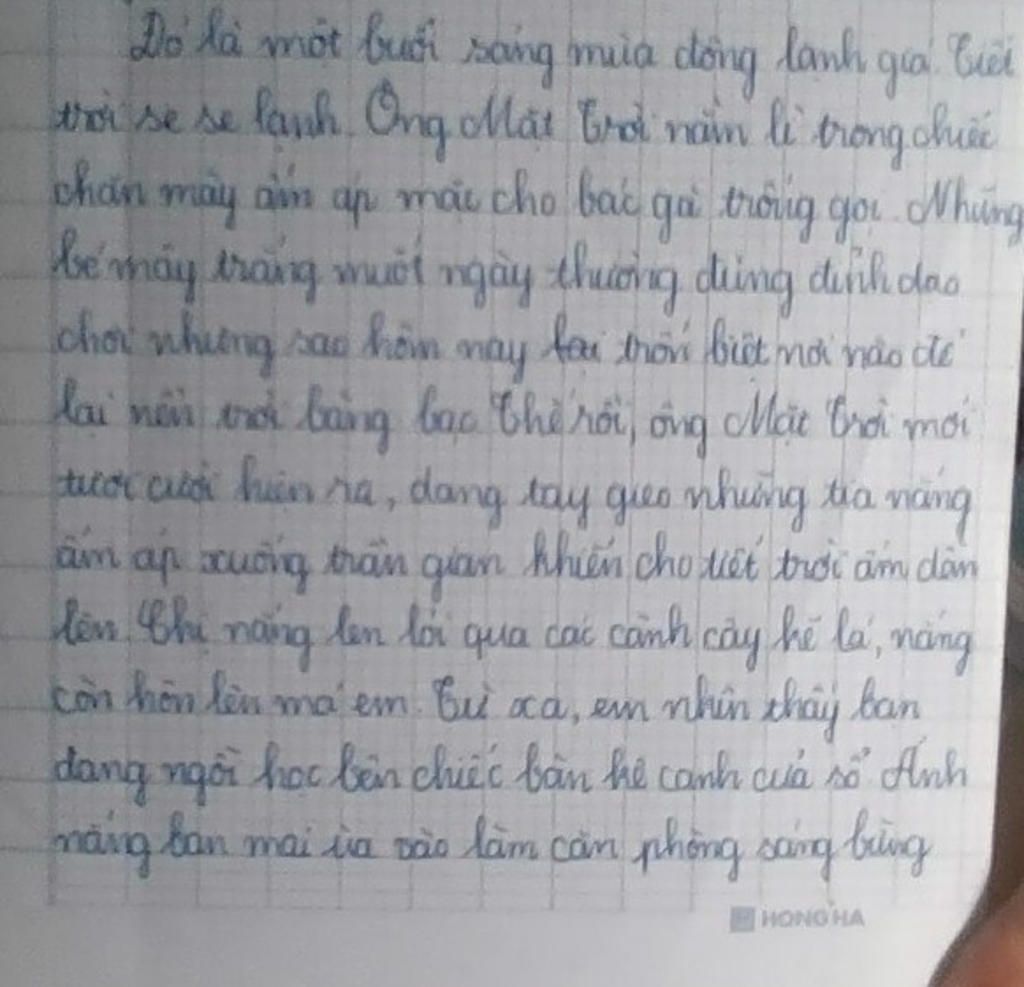 Đó là một buổi sáng mùa đông lạnh giá. Tiết
trời se se lạnh. Ông Mặt Trời nằm lì trong chiếc
chăn mây ấm áp mặc cho bác gà trống gọi. Những
bé mây trắng muốt ngày thường dủng dỉnh dạo
chơi nhưng sao hôm nay lại trốn biệt nơi nào để
lại nền trời bàng bạc. Thế rồi, ông Mặt Trời mới
tươi cười hiện ra, dang tay gieo những tia nắng
ấm áp xuống trần gian khiến cho tiết trời ấm dần
lên. Chị nắng len lỏi qua các cành cây kẽ lá, nắng
còn hôn lên má em. Từ xa, em nhìn thấy bạn
đang ngồi học bên chiếc bàn kê cạnh cửa sổ. Ánh
nắng ban mai ùa vào làm căn phòng sáng bừng
HONG HA